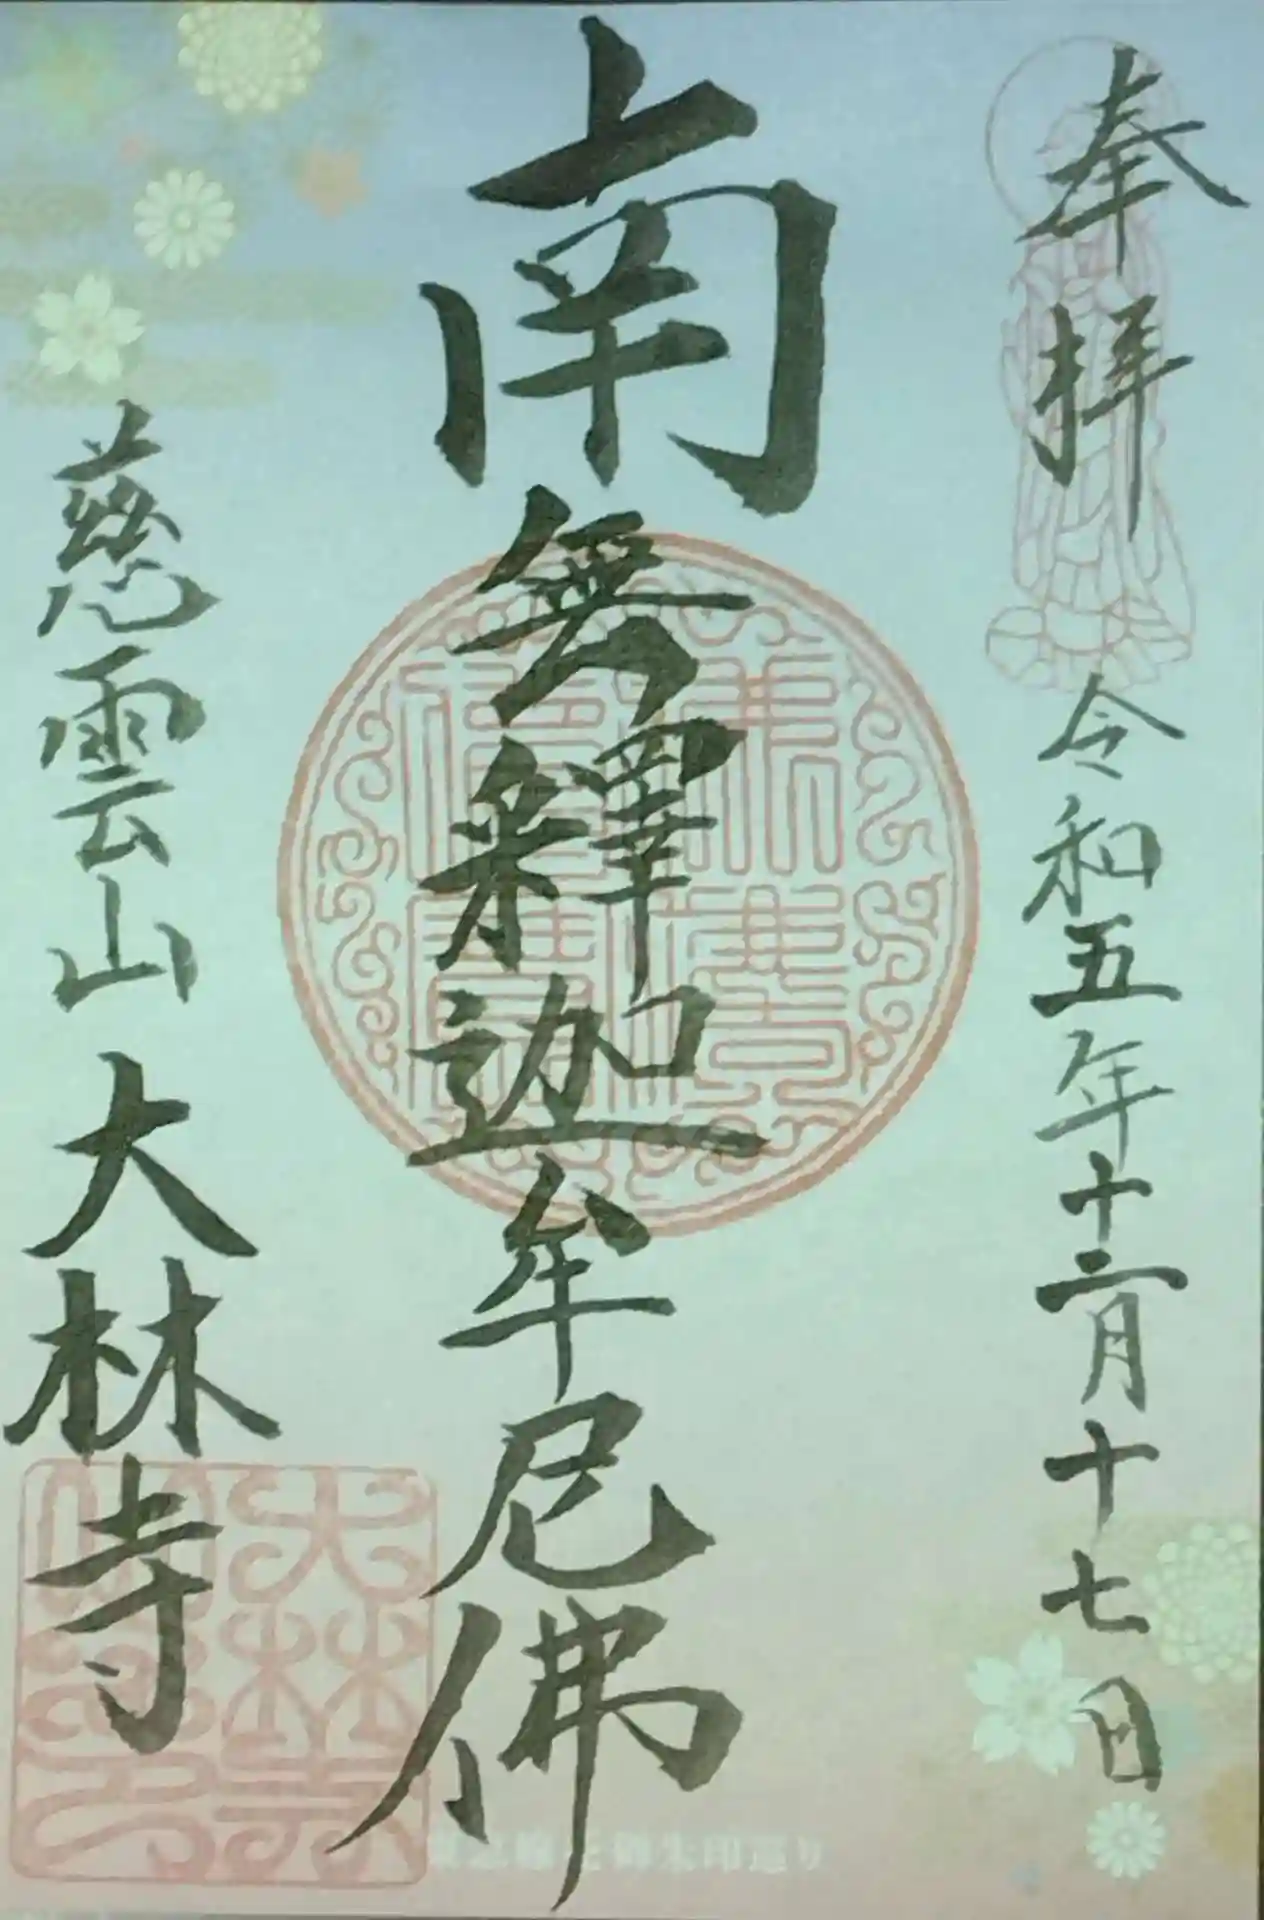 奉拝
令和五年十二月十七日
南無釋迦牟尼佛
慈雲山 大林寺
大林寺